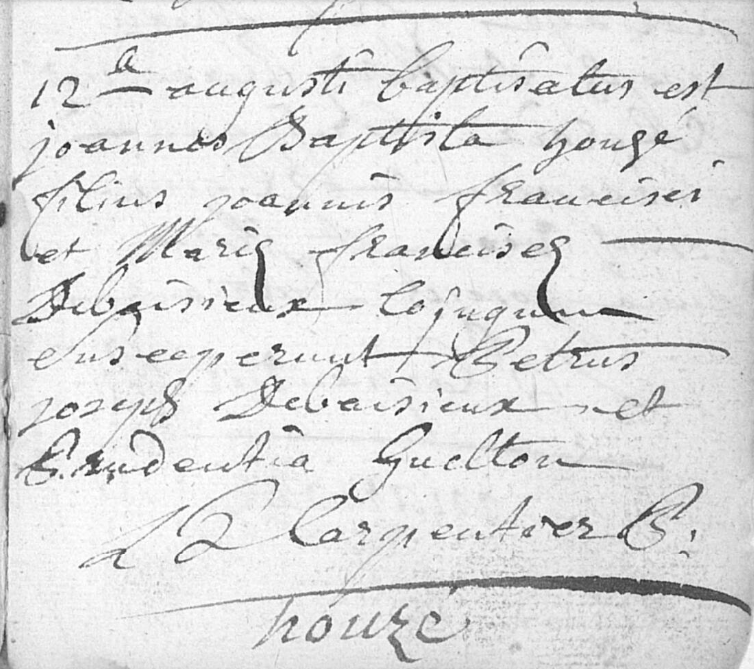 12a augusti baptisatus est
joannes Baptista houzé
filius joannis francisci
et Mariæ franciscæ
Debaisieux Cojugum
susceperunt Petrus
joseph Debaisieux et
Prudentia Guelton
Carpentier P.
houzé